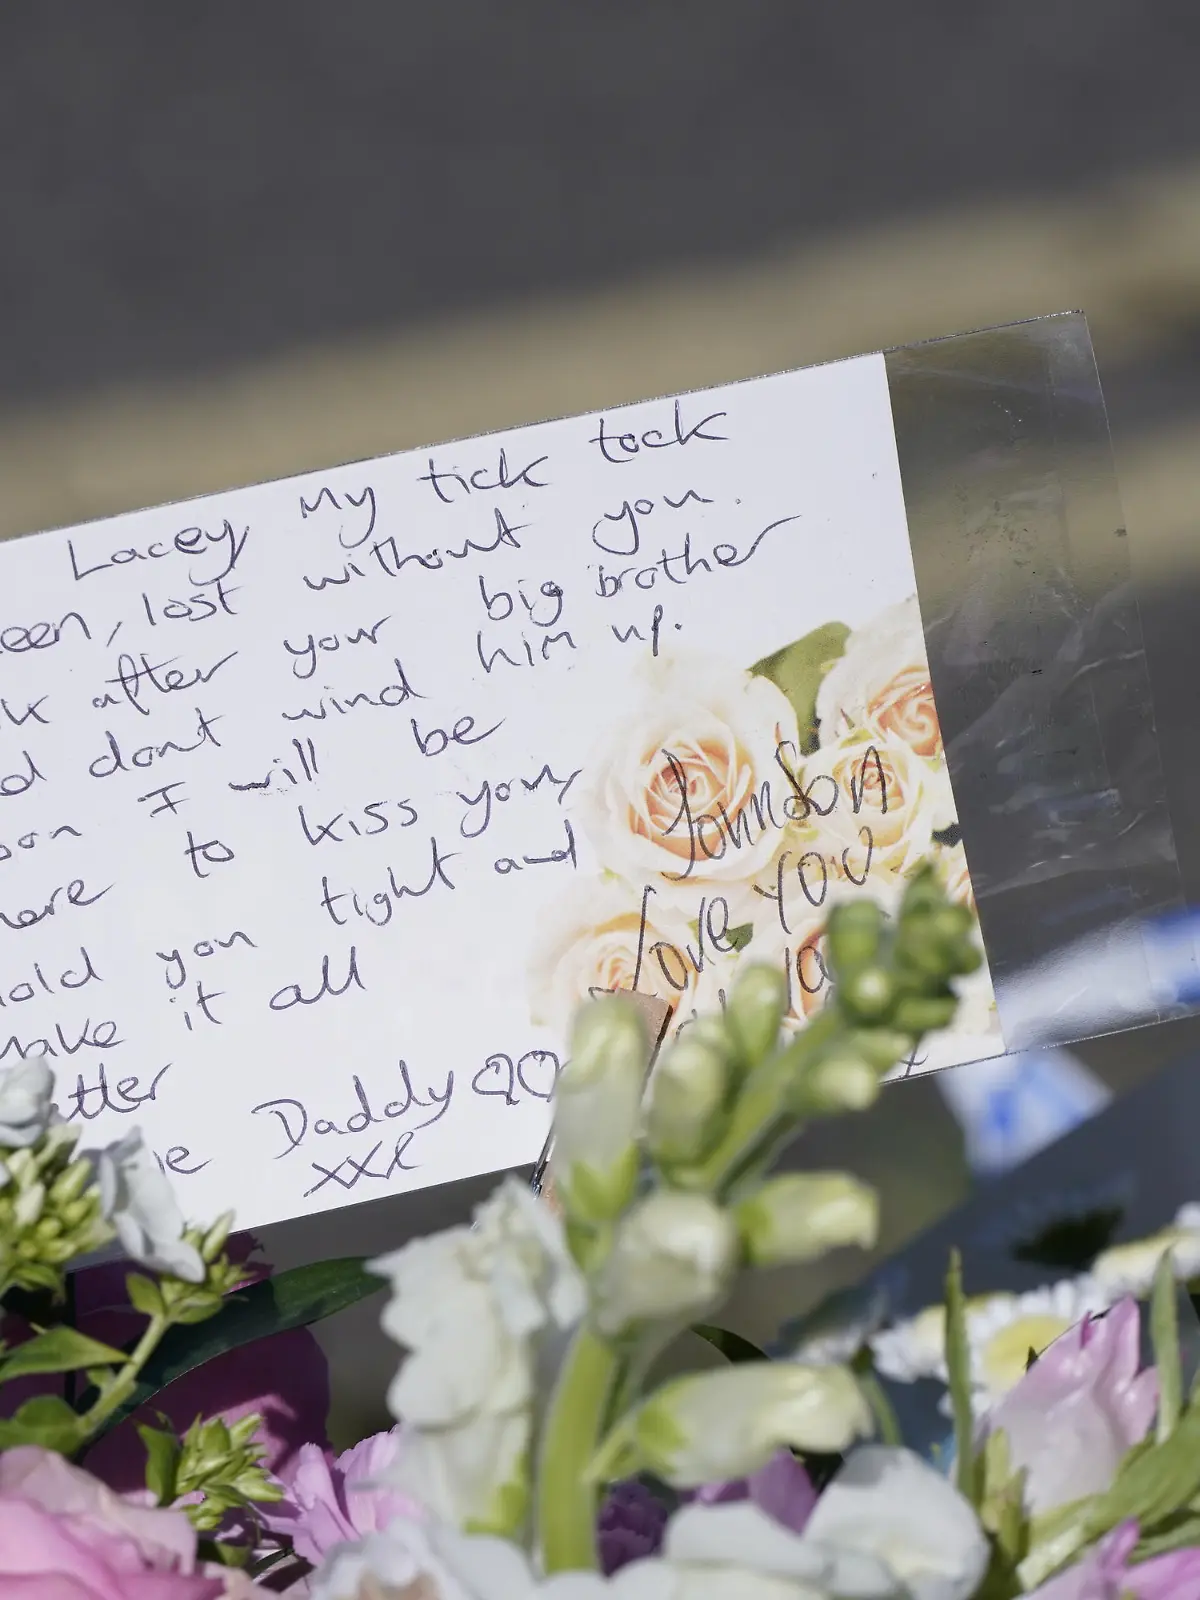 Lacey My tick tock
een, lost without you.
k after your big brother
d dont wind him up.
oon I will be
here to kiss you,
hold you tight and
make it all
etter
Daddy
xxx
Johnson
Love YOU